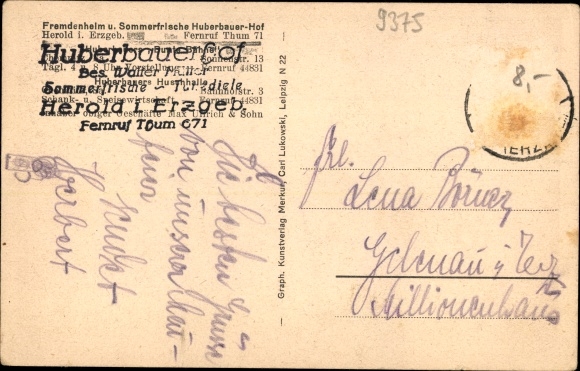 Fremdenheim u. Sommerfrische Huberbauer-Hof
Herold i. Erzgeb. Fernruf Thum 71
Huberbauerhof
Bes. Walter
Sommerfrische –
Herold i. Erzgeb.
Fernruf Thum 671
Sonnenstr. 13
Tägl. 4 u. 8 Uhr Vorstellung Fernruf 44831
Huberbauers
Bahnhofstr. 3
Schank- u. Speisewirtschaft Fernruf 44831
Inhaber obiger Geschäfte Max Ullrich & Sohn
Die besten Grüsse
von unserer
sendet
Herbert
Graph. Kunstverlag Merkur, Carl Lukowski, Leipzig N 22
9375
8,-
Frl.
Lena
Gelenau i. Erz.
Millionenhaus